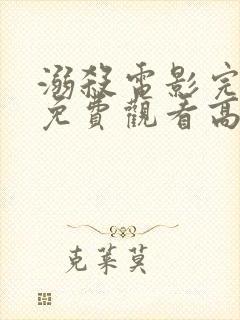 溺殺電影完
免費觀看高
克萊莫